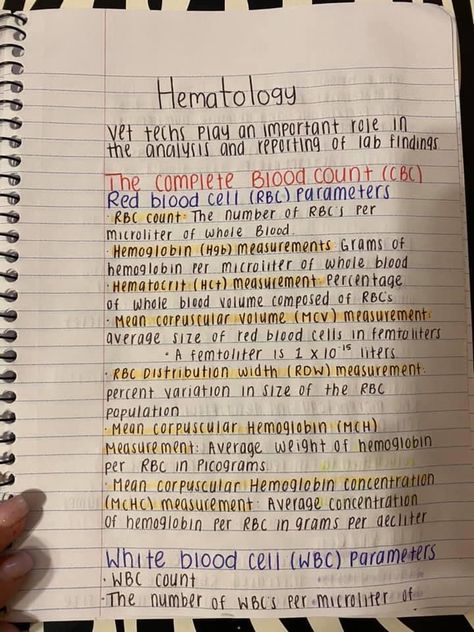 Hematology
Vet techs play an important role in
the analysis and reporting of lab findings
The complete Blood count (CBC)
Red blood cell (RBC) Parameters
· RBC count: The number of RBC's per
microliter of whole Blood.
· Hemoglobin (Hgb) measurements: Grams of
hemoglobin per microliter of whole blood
· Hematocrit (Hct) measurement: Percentage
of whole blood volume composed of RBC's
· Mean corpuscular volume (MCV) measurement:
average size of red blood cells in femtoliters
• A femtoliter is 1 x 10⁻¹⁵ liters
· RBC Distribution width (RDW) measurement:
percent variation in size of the RBC
population
· Mean corpuscular Hemoglobin (MCH)
Measurement: Average weight of hemoglobin
per RBC in Picograms
· Mean corpuscular Hemoglobin concentration
(MCHC) measurement: Average concentration
of hemoglobin per RBC in grams per decliter
White blood cell (WBC) Parameters
· WBC count
· The number of WBC's per microliter of